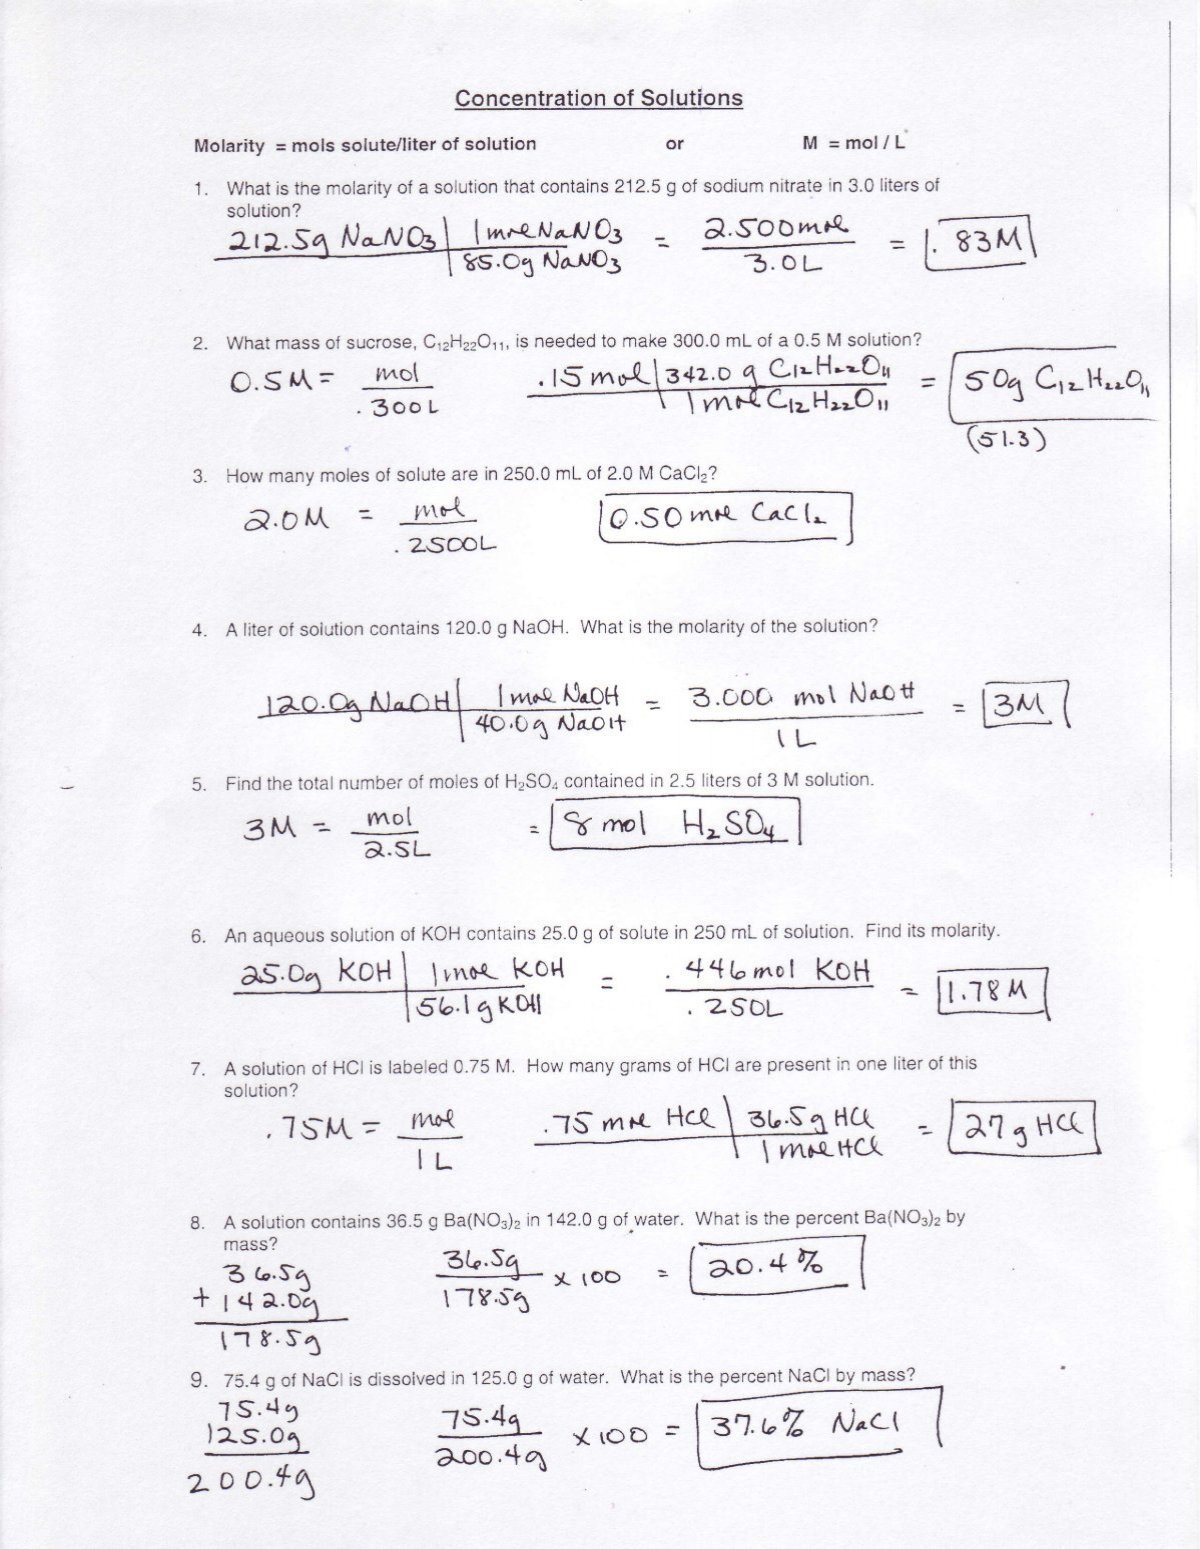 Concentration of Solutions
Molarity = mols solute/liter of solution or M = mol / L
1. What is the molarity of a solution that contains 212.5 g of sodium nitrate in 3.0 liters of
solution?
212.5g NaNO3 | 1 mole NaNO3 = 2.500 mole = .83M
85.0g NaNO3 3.0L
2. What mass of sucrose, C₁₂H₂₂O₁₁, is needed to make 300.0 mL of a 0.5 M solution?
0.5M = mol .15 mol | 342.0 g C12H22O11 = 50g C12H22O11
.300L 1 mole C12H22O11
(51.3)
3. How many moles of solute are in 250.0 mL of 2.0 M CaCl₂?
2.0M = mol 0.50 mole CaCl2
.2500L
4. A liter of solution contains 120.0 g NaOH. What is the molarity of the solution?
120.0g NaOH | 1 mole NaOH = 3.000 mol NaOH = 3M
40.0g NaOH 1L
5. Find the total number of moles of H₂SO₄ contained in 2.5 liters of 3 M solution.
3M = mol = 8 mol H2SO4
2.5L
6. An aqueous solution of KOH contains 25.0 g of solute in 250 mL of solution. Find its molarity.
25.0g KOH | 1 mole KOH = .446 mol KOH = 1.78 M
56.1g KOH .250L
7. A solution of HCl is labeled 0.75 M. How many grams of HCl are present in one liter of this
solution?
.75M = mole .75 mole HCl | 36.5g HCl = 27g HCl
1L 1 mole HCl
8. A solution contains 36.5 g Ba(NO₃)₂ in 142.0 g of water. What is the percent Ba(NO₃)₂ by
mass?
36.5g 36.5g x 100 = 20.4%
+ 142.0g 178.5g
178.5g
9. 75.4 g of NaCl is dissolved in 125.0 g of water. What is the percent NaCl by mass?
75.4g 75.4g x 100 = 37.6% NaCl
125.0g 200.4g
200.4g